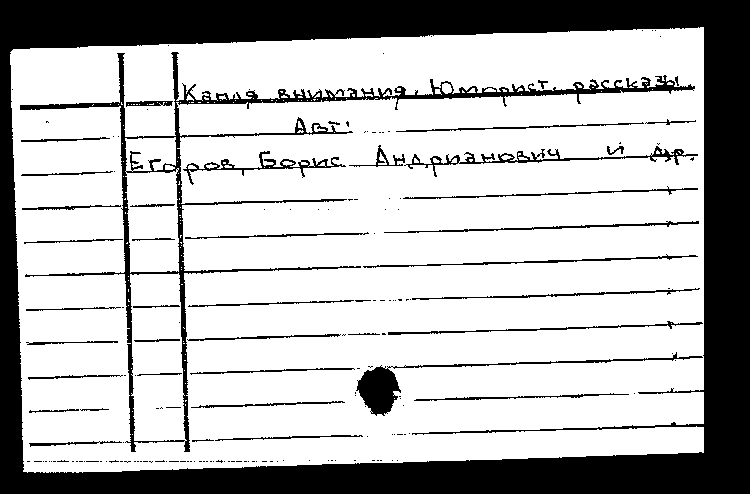 Капля внимания. Юморист. рассказы.
Авт:
Егоров, Борис Андрианович и др.